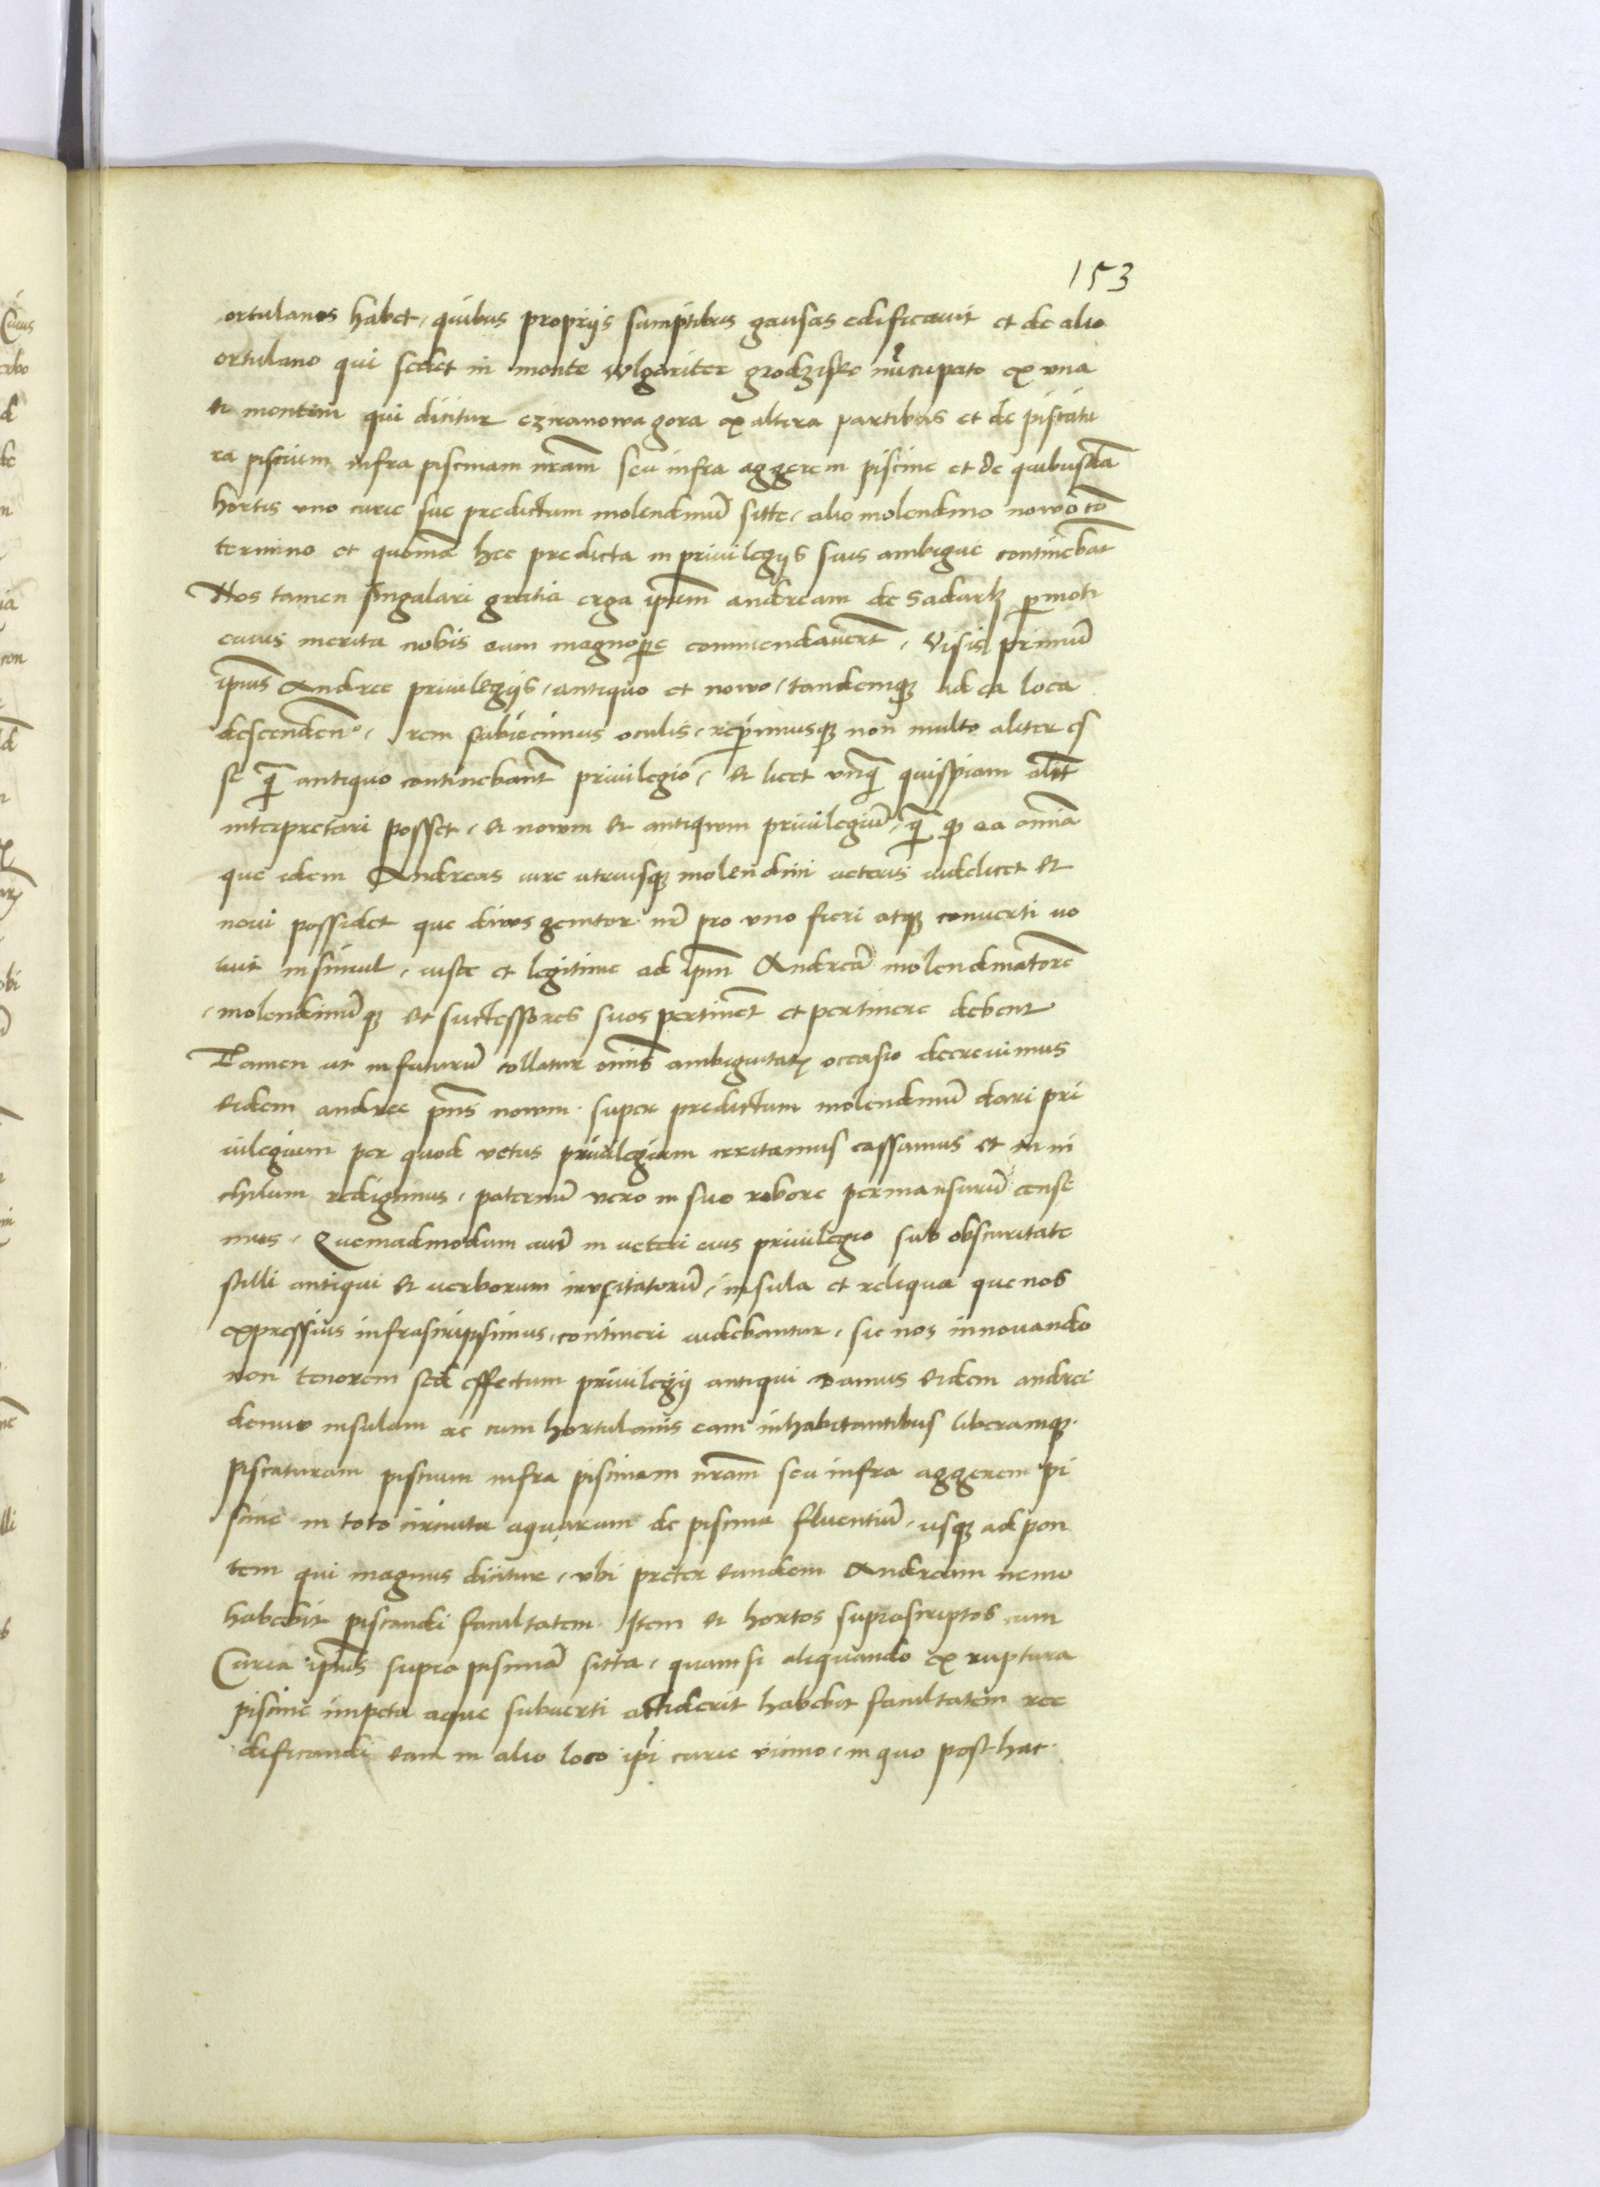 153
ortulanos habet, quibus proprijs sumptibus gausas edificauit et de alio
ortulano qui sedet in monte vulgariter grodzisko nūcupato ex vna
et montem qui dicitur czranowa gora ex altera partibus et de piscatu
ra piscium infra piscinam nrām seu infra aggerem piscine et de quibusdā
hortis vno curie sue predictum molendinū sitte, alio molendino nowo cō
termino et quoniā hec predicta in priuilegijs suis ambigue continebāt
Nos tamen singulari gratia erga ipsum andream de Sadark pmoti
cuius merita nobis eum magnopē commendauerūt, Visis primū
ipsius Andree priuilegijs, antiquo et nowo, tandemqȝ ad ea loca
descenden, rem subiecimus oculis, repimusqȝ non multo aliter es
se q̄ antiquo continebant priuilegio, et licet vnq̄ quispiam alit
interpretari posset, et nowm et antiqwm priuilegiū, q̄ qȝ ea omnia
que idem Andreas iure utriusqȝ molendini veteris videlicet et
noui possidet que diuus genitor nr̄ pro vno fieri atqȝ conuerti uo
luit insimul, iuste et legitime ad ipm Andreā molendinatorē
molendinūqȝ et successores suos pertinēt et pertinere debent
Tamen ut infuturū tollatur omīs ambiguitatis occasio decreuimus
eidem andree pn̄s nowm super predictum molendinū dari pri
uilegium per quod vetus priuilegium irritamus cassamus et in ni
chilum redigimus, paternū vero in suo robore permansurū cense
mus, Quemadmodum autē in veteri eius priuilegio sub obscuritate
stilli antiqui et verborum invsitatorū, insula et reliqua que nos
expressius infrascripsimus, contineri uidebantur, sic nos innouando
non tenorem sed effectum priuilegij antiqui Damus eidem andree
denuo insulam ac cum hortulanis eam inhabitantibus liberamqȝ
piscaturam piscium infra piscinam nrām seu infra aggerem pi
scine in toto circuitu aquarum de piscina fluentiū, usqȝ ad pon
tem qui magnus dicitur, vbi preter eundem Andream nemo
habebit piscandi facultatem Item et hortos suprascriptos cum
Curia ipsius supra piscinā sitta, quam si aliquando ex ruptura
piscine impetu aque subuerti acciderit habebit facultatem ree
dificandi eam in alio loco ipi curie vicino, in quo post hac